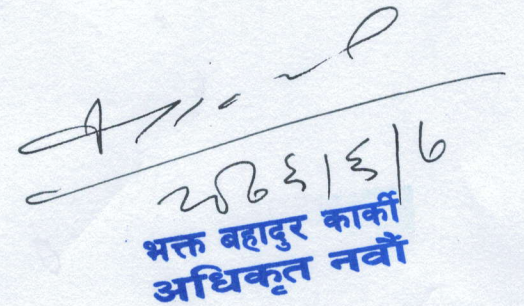 २०७६/६/७
भक्त बहादुर कार्की
अधिकृत नवौं